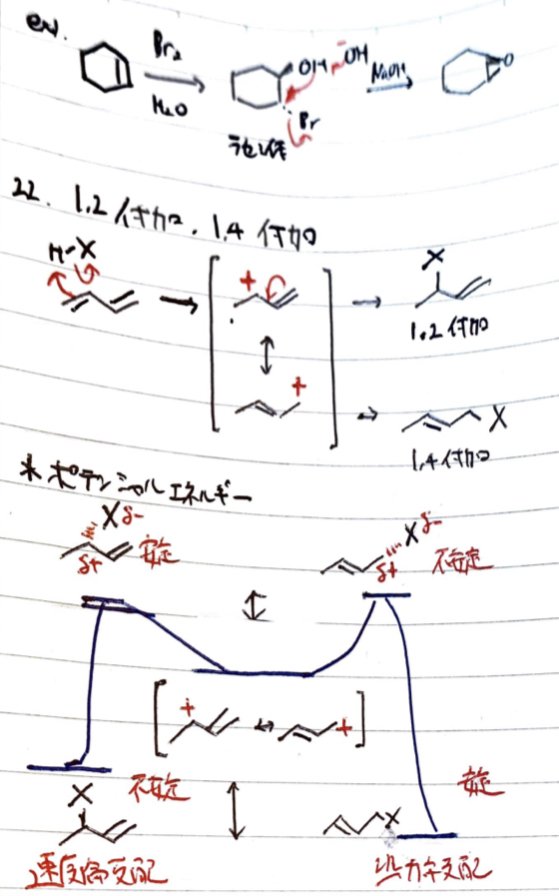 ex).
Br₂
H₂O
OH
⁻OH
Br
NaOH
O
ラセミ体
22. 1,2付加, 1,4付加
H-X
+
X
1,2付加
+
X
1,4付加
*ポテンシャルエネルギー
Xδ-
δ+
安定
Xδ-
δ+
不安定
+
+
不安定
安定
X
X
速度論支配
熱力学支配